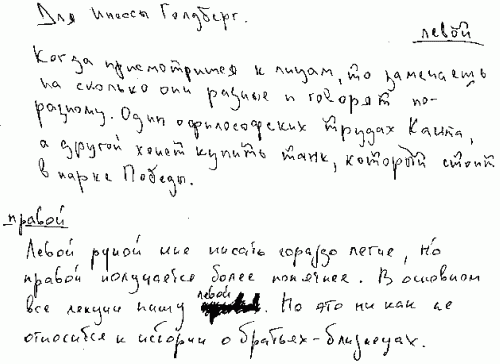 Для инессы Голдберг.
левой
Когда присмотришся к лицам, то замечаешь
на сколько они разные и говорят по-
разному. Один о философских трудах Канта,
а другой хочет купить танк, который стоит
в парке Победы.
правой
Левой рукой мне писать гораздо легче, но
правой получается более понятнее. В основном
все лекции пишу левой . Но это ни как не
относится к истории о братьях-близнецах.